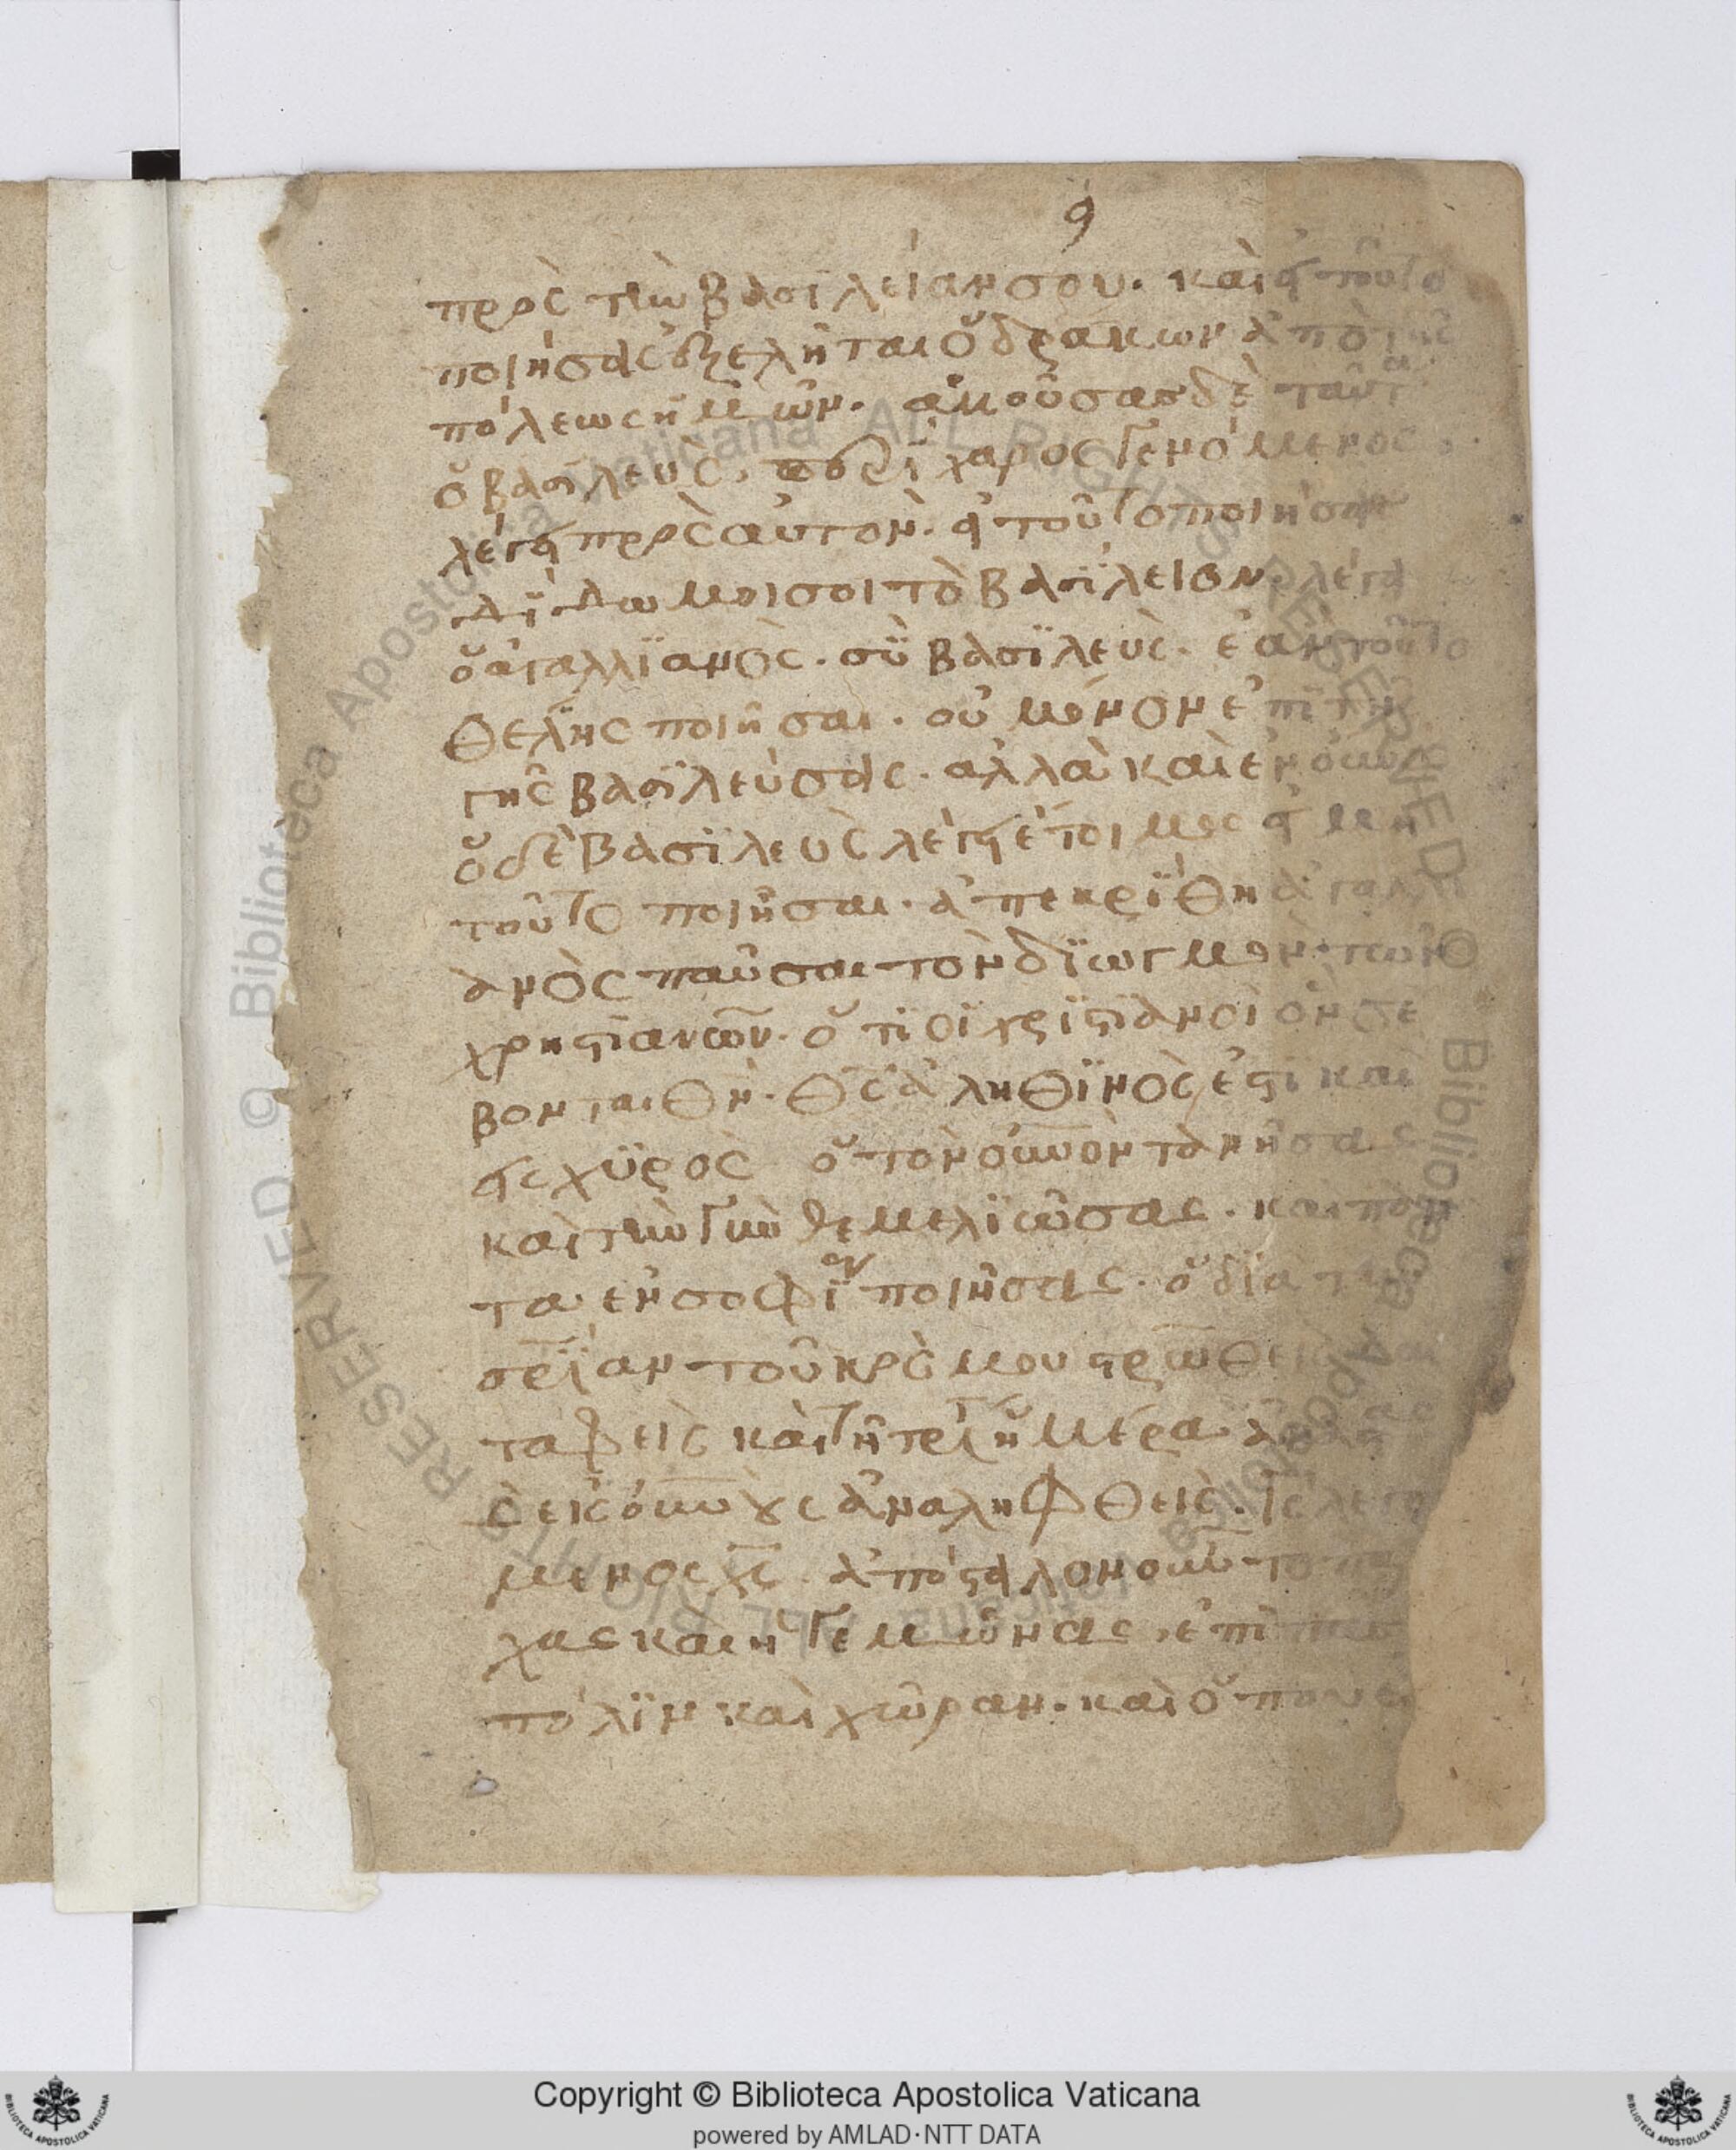 9
πρὸς τὴν βασιλείαν σου. καὶ εἰ τοῦτο
ποιήσας ἐξελῆται ὁ δράκων ἀπὸ τῆς
πόλεως ἡμῶν. ἀκούσας δὲ ταῦτα
ὁ βασϊλεὺς, περίχαρος γενόμενος
λέγει πρὸς αὐτον. εἰ τοῦτο ποιήσεις
δίδωμοι σοι τὸ βασίλειον. λέγει
ὁ ἀγαλλϊανὸς. σὺ βασϊλεὺς. ἐὰν τοῦτο
θελῆς ποιῆσαι. οὐ μόνον ἐπὶ τῆς
γῆς βασϊλεύσεις. ἀλλὰ καὶ ἐν οὐνοῖς
ὁ δὲ βασϊλεὺς λέγει ἕτοιμος εἰμὴ
τοῦτο ποιῆσαι. ἀπεκρίθη ἀγαλλι
ανὸς παῦσαι τὸν δϊωγμον τῶν
χρηστϊανῶν. ὅτϊ οἱ χρϊστϊανοὶ ὃν σέ
βονται θν. θς ἀληθϊνὸς ἐστὶ καὶ
εἰσχϋρὸς ὁ τὸν οὐνον τανήσας
καὶ τὴν γῆν θεμελϊώσας. καὶ πάν
τα ἐν σοφΐ ποιήσας. ὁ δϊὰ τὴν
σρΐαν τοῦ κόσμου στρωθεὶς καὶ
ταφεὶς καὶ τῆ τρίτη ἡμέρα ἀναστὰς
ς εἰς οὐνοὺς ἀναληφθεὶς. ἰς λεγό
μενος χς. ἀπόστειλον οὖν τοπάρ
χας καὶ ηγεμῶνας, ἐπὶ πᾶσαν
πόλϊν καὶ χῶραν. καὶ ὅπου ε
Copyright © Biblioteca Apostolica Vaticana
powered by AMLAD·NTT DATA